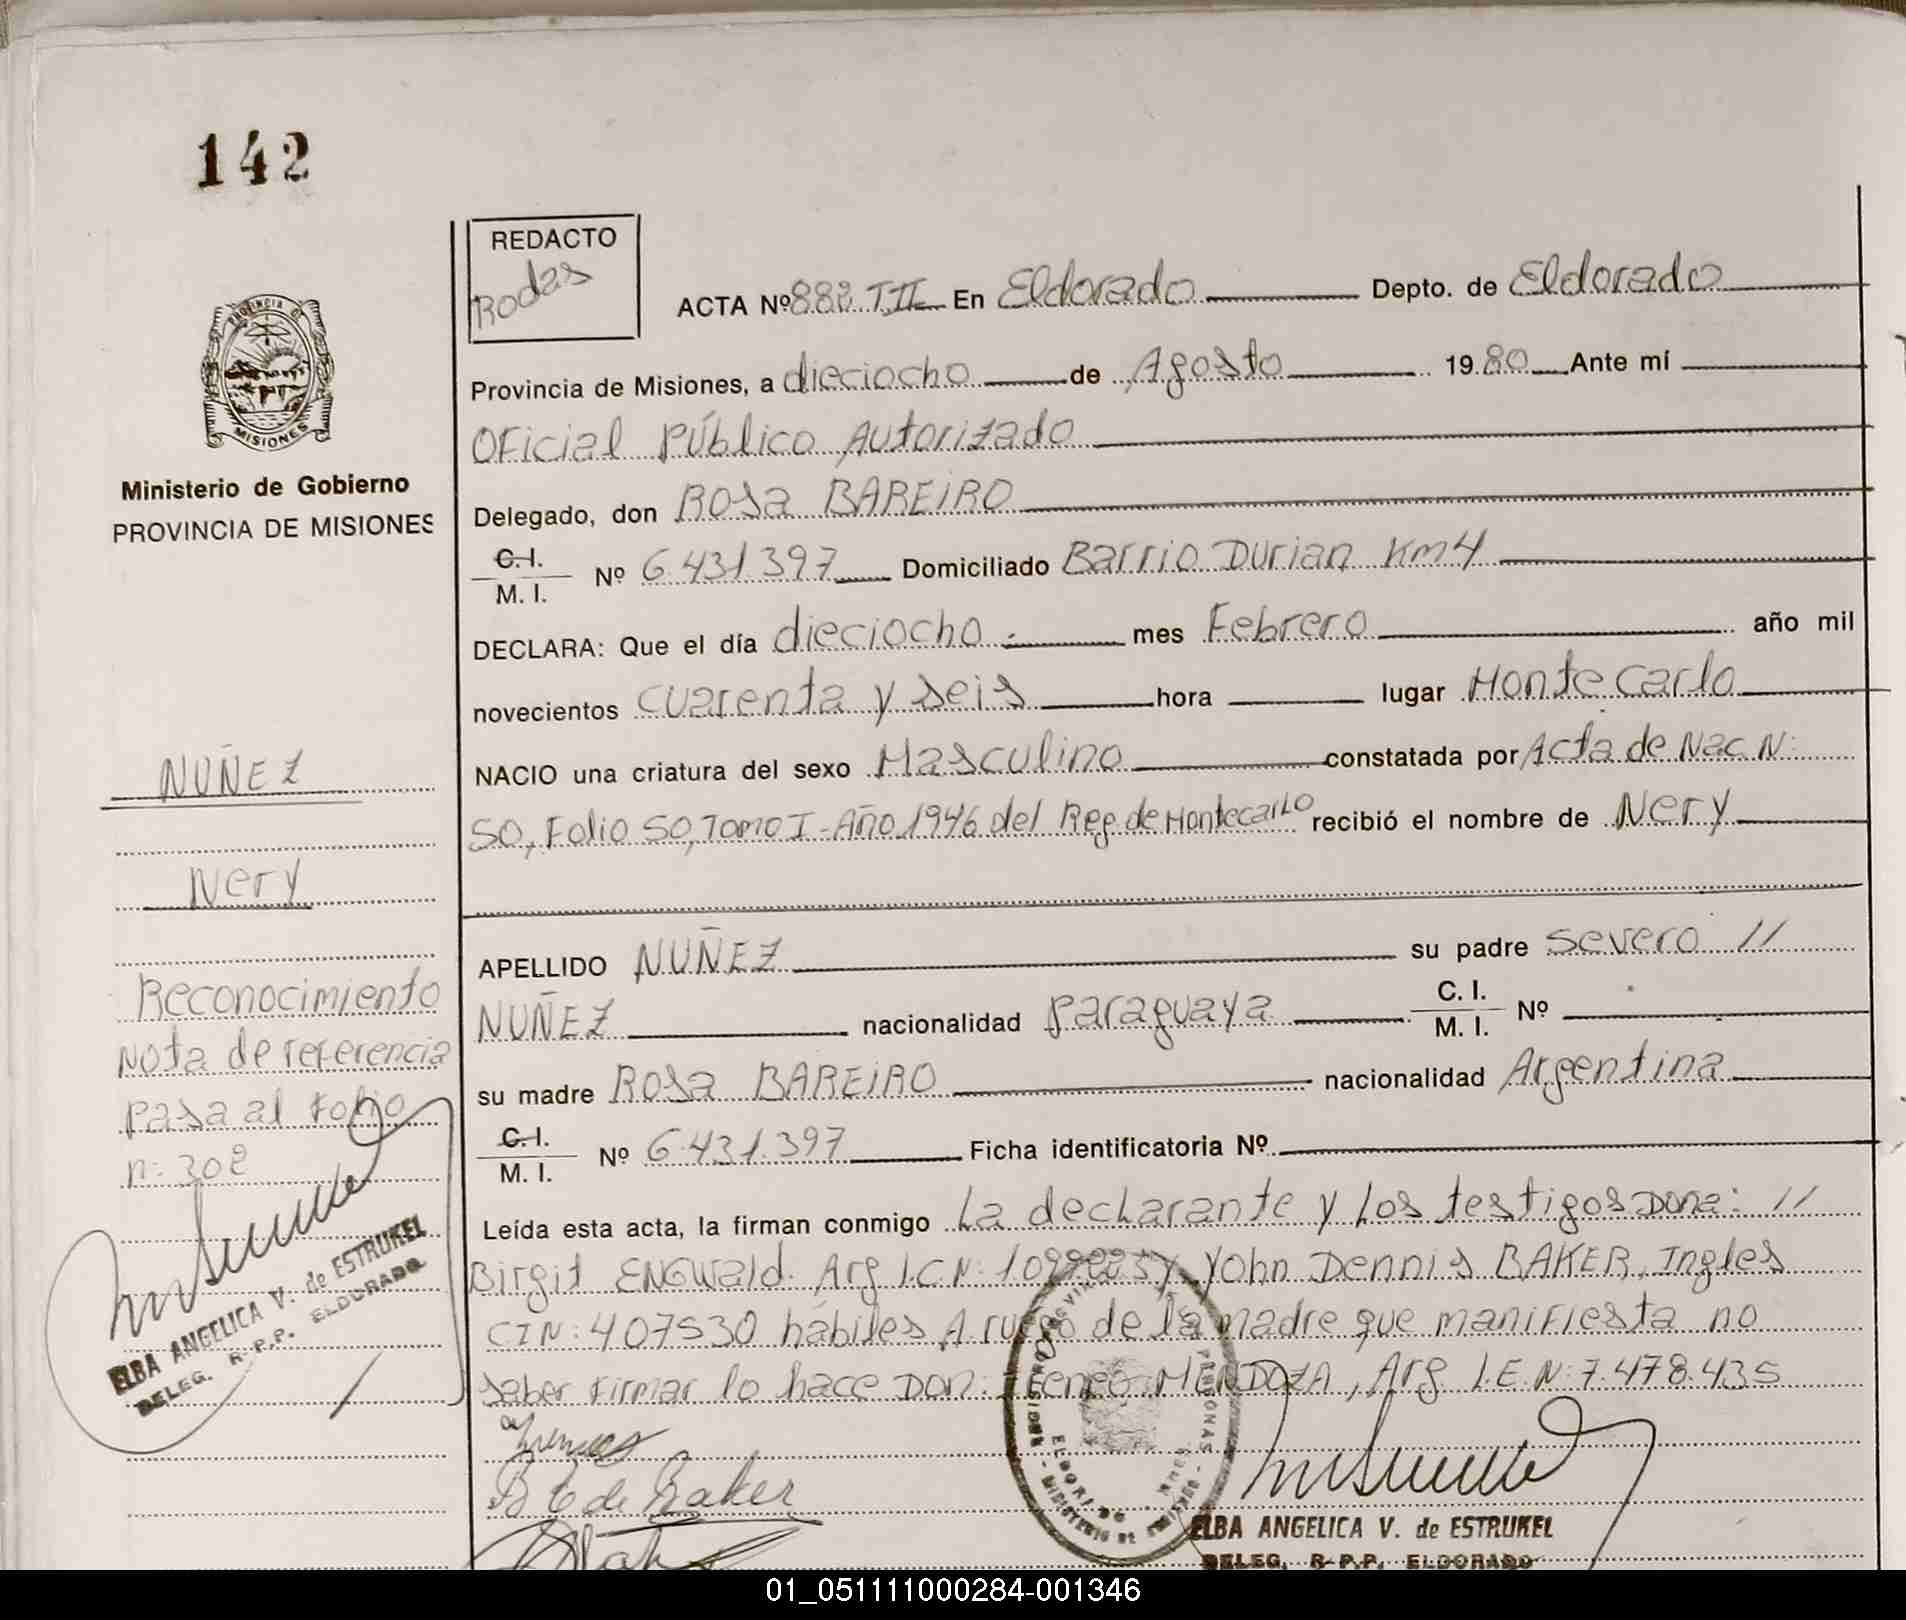 142
REDACTO
Rodas
ACTA Nº 882 T.II En Eldorado Depto. de Eldorado
PROVINCIA D
MISIONES
Provincia de Misiones, a dieciocho de Agosto 1980 Ante mí
Oficial Público Autorizado
Ministerio de Gobierno
PROVINCIA DE MISIONES
Delegado, don Rosa BAREIRO
C.I.
M. I. Nº 6.431.397 Domiciliado Barrio Durian Km 4
DECLARA: Que el día dieciocho mes Febrero año mil
novecientos cuarenta y seis hora lugar Montecarlo
NUÑEZ
NACIO una criatura del sexo Masculino constatada por Acta de Nac N:
50, Folio 50, Tomo I - Año 1946 del Reg. de Montecarlo recibió el nombre de Nery
Nery
APELLIDO NUÑEZ su padre Severo //
NUÑEZ nacionalidad paraguaya C. I. M. I. Nº
su madre Rosa BAREIRO nacionalidad Argentina
C.I.
M. I. Nº 6.431.397 Ficha identificatoria Nº
Reconocimiento
Nota de referencia
pasa al Folio
n: 302
Leída esta acta, la firman conmigo La declarante y los testigos Doña: //
Birgit ENGWald. Arg I.C.N: Yohn Dennis BAKER, Ingles
CIN: 407530 hábiles A ruego de la madre que manifiesta no
saber firmar lo hace Don: MENDOZA, Arg. L.E.N: 7.478.435
ELBA ANGELICA V. de ESTRUKEL
DELEG. R.P.P. ELDORADO
B E de Baker
ELBA ANGELICA V. de ESTRUKEL
DELEG. R.P.P. ELDORADO
01_051111000284-001346